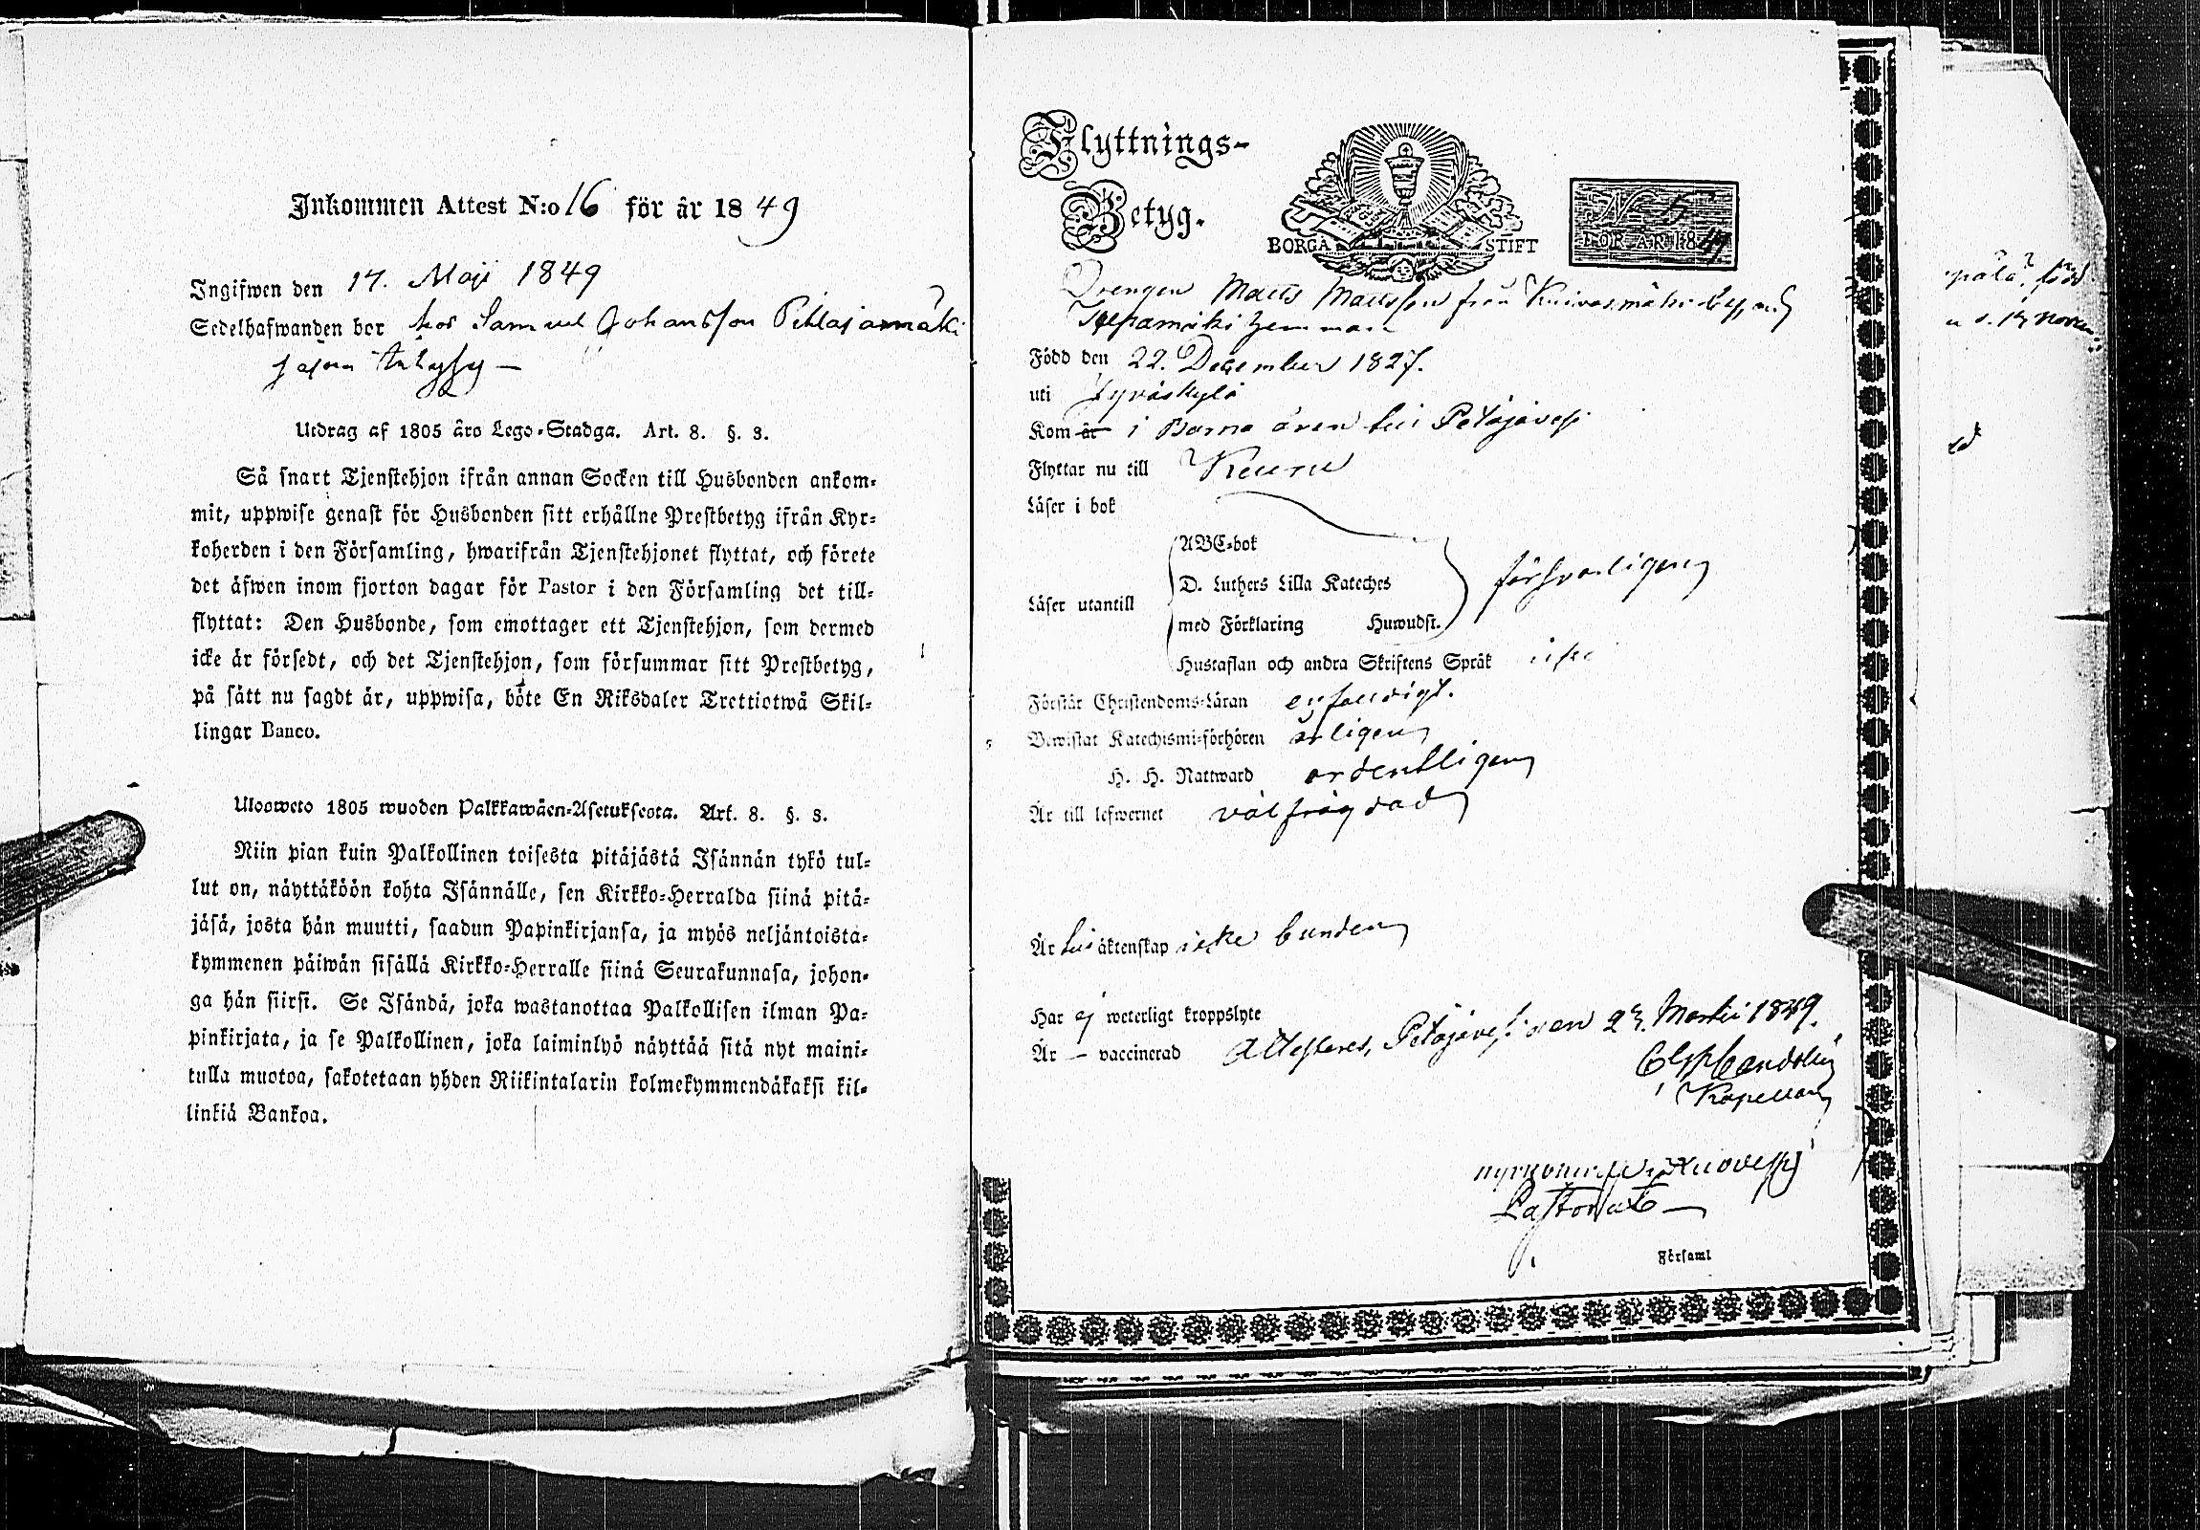 Inkommen Attest N:o 16 för år 1849
Ingifwen den 17. Maji 1849
Sedelhafwanden bor hos Samuel Johansson Pihlajamäki
Utdrag af 1805 års Lego-Stadga. Art. 8. §. 3.
Så snart Tjenstehjon ifrån annan Socken till Husbonden ankom-
mit, uppwise genast för Husbonden sitt erhållne Prestbetyg ifrån Kyr-
koherden i den Församling, hwarifrån Tjenstehjonet flyttat, och förete
det äfwen inom fjorton dagar för Pastor i den Församling det till-
flyttat: Den Husbonde, som emottager ett Tjenstehjon, som dermed
icke är försedt, och det Tjenstehjon, som försummar sitt Prestbetyg,
på sätt nu sagdt är, uppwisa, böte En Riksdaler Trettiotwå Skil-
lingar Banco.
Uloswetö 1805 wuoden Palkkawäen-Asetuksesta. Art. 8. §. 3.
Niin pian kuin Palkollinen toisesta pitäjästä Isännän tykö tul-
lut on, näyttäköön kohta Isännälle, sen Kirkko-Herralda siinä pitä-
jäsä, josta hän muutti, saadun Papinkirjansa, ja myös neljäntoista-
kymmenen päiwän sisällä Kirkko-Herralle siinä Seurakunnasa, johon-
ga hän siirsi. Se Isändä, joka wastanottaa Palkollisen ilman Pa-
pinkirjata, ja se Palkollinen, joka laiminlyö näyttää sitä nyt maini-
tulla muotoa, sakotetaan yhden Riikintalarin kolmekymmendäkaksi kil-
linkiä Bankoa.
Flyttnings-
Betyg.
BORGÅ STIFT
No 5
FÖR ÅR 1849
Drengen Matts Mattsson från Kuivasmäki
Född den 22. December 1827.
uti Jyväskylä
Kom år i Barna åren till Petäjävesi
Flyttar nu till Keuru
Läser i bok
Läser utantill
ABC-bok
D. Luthers Lilla Kateches
med Förklaring Huwudst.
försvarligen
Hustaflan och andra Skriftens Språk icke
Förstår Christendoms-Läran enfaldigt.
Bewistat Katechismi-förhören årligen
H. H. Nattward ordentligen
Är till lefwernet välfrägdad
Är till äktenskap icke bunden
Har ej weterligt kroppslyte
Är — vaccinerad Attesteras, Petäjävesi den 23. Martii 1849.
Kapellan
Pastorat
Församl